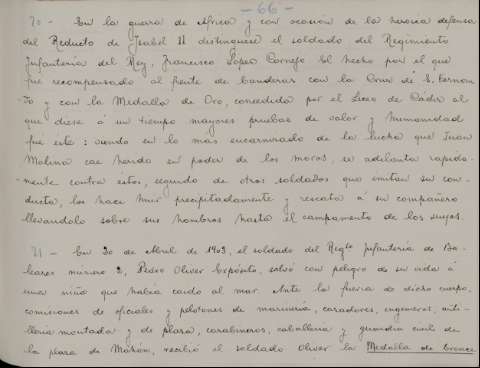 - 66 -
70 - En la guerra de Africa y con ocasión de la heroica defensa
del Reducto de Isabel II distinguese el soldado del Regimiento
Infantería del Rey, Francisco López Cornejo El hecho por el que
fué recompensado al frente de banderas con la Cruz de S. Fernan
do y con la Medalla de Oro, concedida por el Liceo de Cádiz al
que diese á un tiempo mayores pruebas de valor y humanidad
fué este: viendo en lo más encarnizado de la lucha que Juan
Molina cae herido en poder de los moros, se adelanta rapida-
mente contra estos, seguido de otros soldados que imitan su con-
ducta, los hace huir precipitadamente y rescata á su compañero
llevandolo sobre sus hombros hasta el campamento de los suyos.
71 - En 20 de Abril de 1903, el soldado del Regto Infantería de Ba-
leares número 2, Pedro Oliver Expósito, salvó con peligro de su vida á
una niña que había caido al mar. Ante la fuerza de dicho cuerpo,
comisiones de oficiales y pelotones de marinería, cazadores, ingenieros, arti-
llería montada y de plaza, carabineros, caballería y guardia civil de
la plaza de Mahón, recibió el soldado Oliver la Medalla de bronce